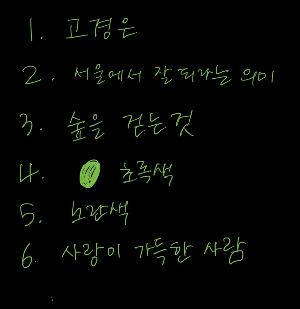 1. 고경은
2. 서울에서 잘 되라는 의미
3. 숲을 걷는것
4. 초록색
5. 노란색
6. 사랑이 가득한 사람